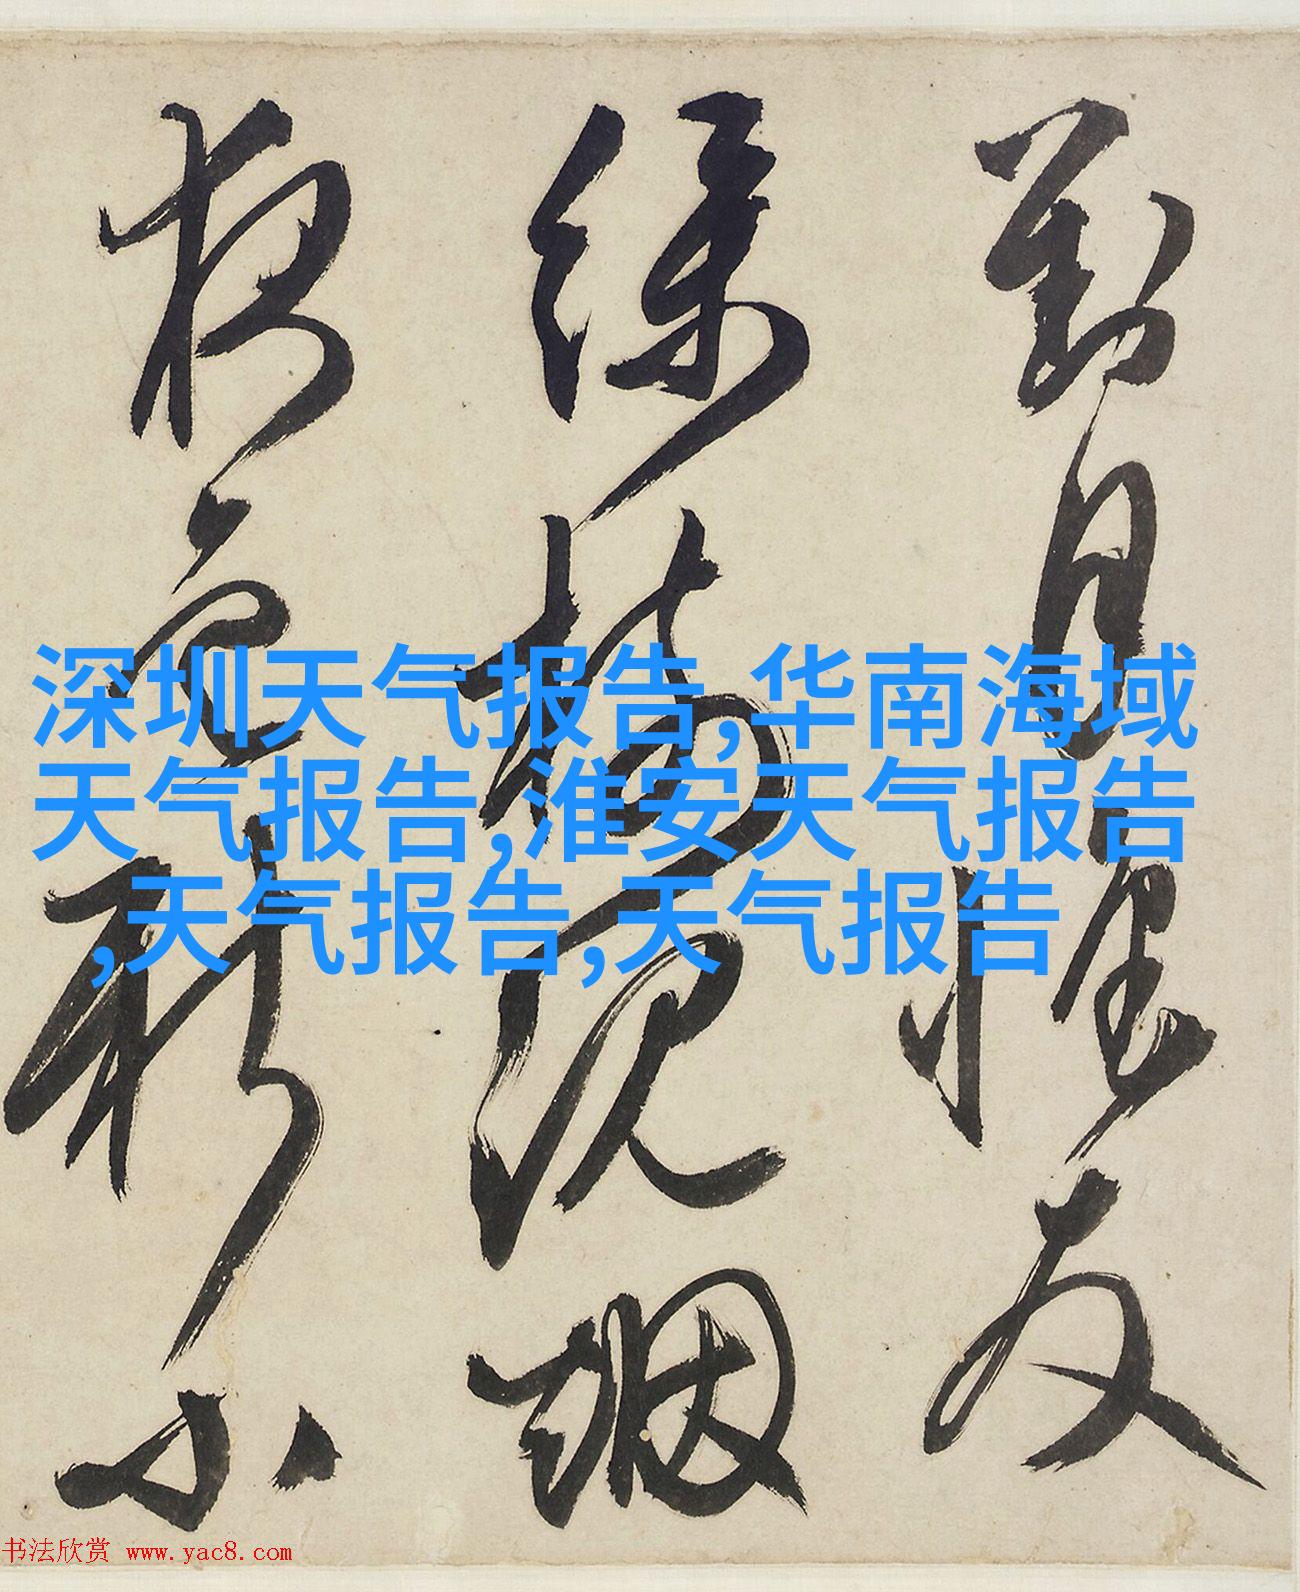 深圳天气报告,华南海域
天气报告,淮安天气报告
,天气报告,天气报告
對月懷友
綠楊 烟
色新
书法欣赏 www.yac8.com